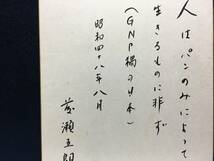 人はパンのみによって
生きるものに非ず
(GNP禍の日本)
昭和四十八年八月
瀬五朗